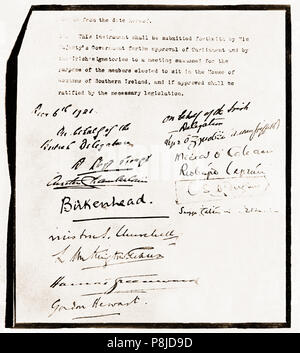 from the date hereof.
This instrument shall be submitted forthwith by His
Majesty's Government for the approval of Parliament and by
the Irish signatories to a meeting summoned for the
purpose of the members elected to sit in the House of
Commons of Southern Ireland, and if approved shall be
ratified by the necessary legislation.
Dec 6th 1921.
On behalf of the
British Delegation
On behalf of the Irish
Delegation
D Lloyd George
Austen Chamberlain
Birkenhead.
Winston S. Churchill
L. Worthington-Evans
Hamar Greenwood
Gordon Hewart.
Art Ó Gríobhtha
Mícheál Ó Coileáin
Riobárd Bartún
alamy
P8JD9D